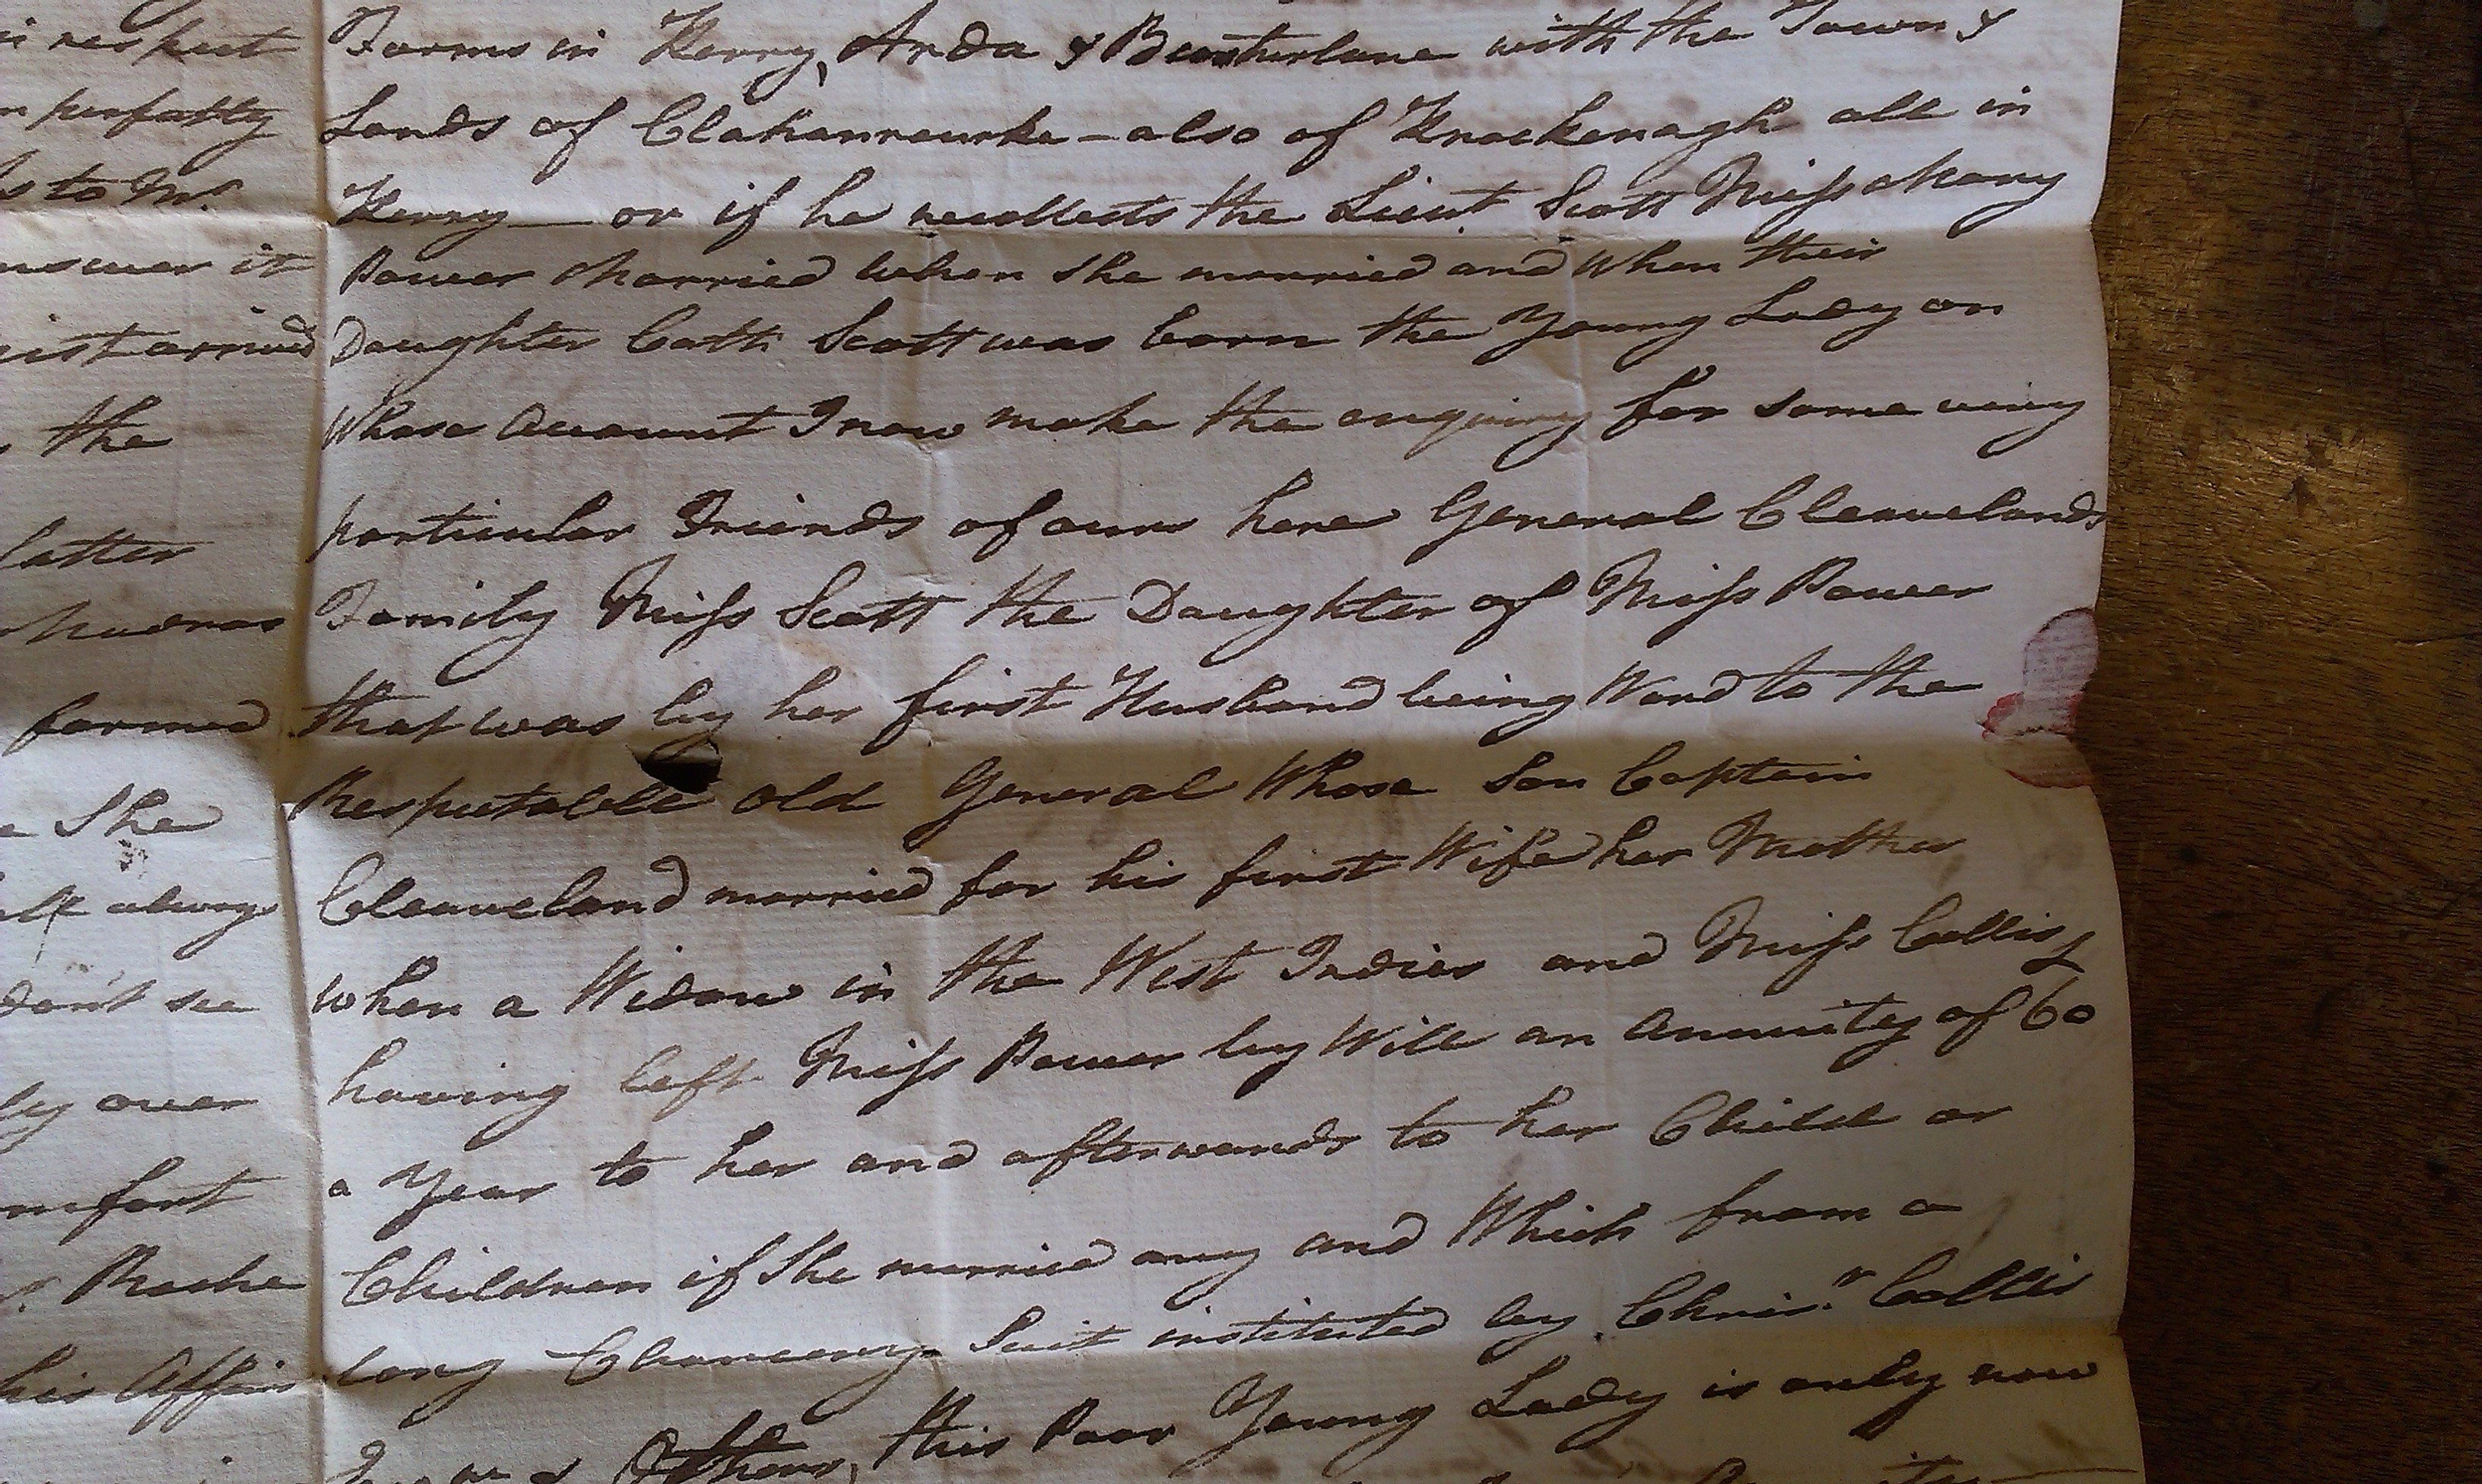 in respect
perfectly
to Mr.
answer it
just arrived
the
latter
Madras
formed
She
always
don't see
over
comfort
Roche
his Affairs
Farms in Kerry, Arda & Beasterlane with the Town &
Lands of Clahanrourke - also of Knockenagh all in
Kerry — or if he recollects the Lieut. Scott Miss Mary
Power Married when she married and when their
Daughter Cath: Scott was born the Young Lady on
Whose Account I now make the enquiry for some very
particular Friends of ours here General Cleavelands
Family Miss Scott the Daughter of Miss Power
that was by her first Husband being Ward to the
Respectable Old General Whose Son Captain
Cleaveland married for his first Wife her Mother
when a Widow in the West Indies and Miss Collis
having left Miss Power by Will an Annuity of 60
a Year to her and afterwards to her Child or
Children if She married any and Which from a
long Chancery Suit instituted by Chrisr. Collis
& Others, this Poor Young Lady is only now